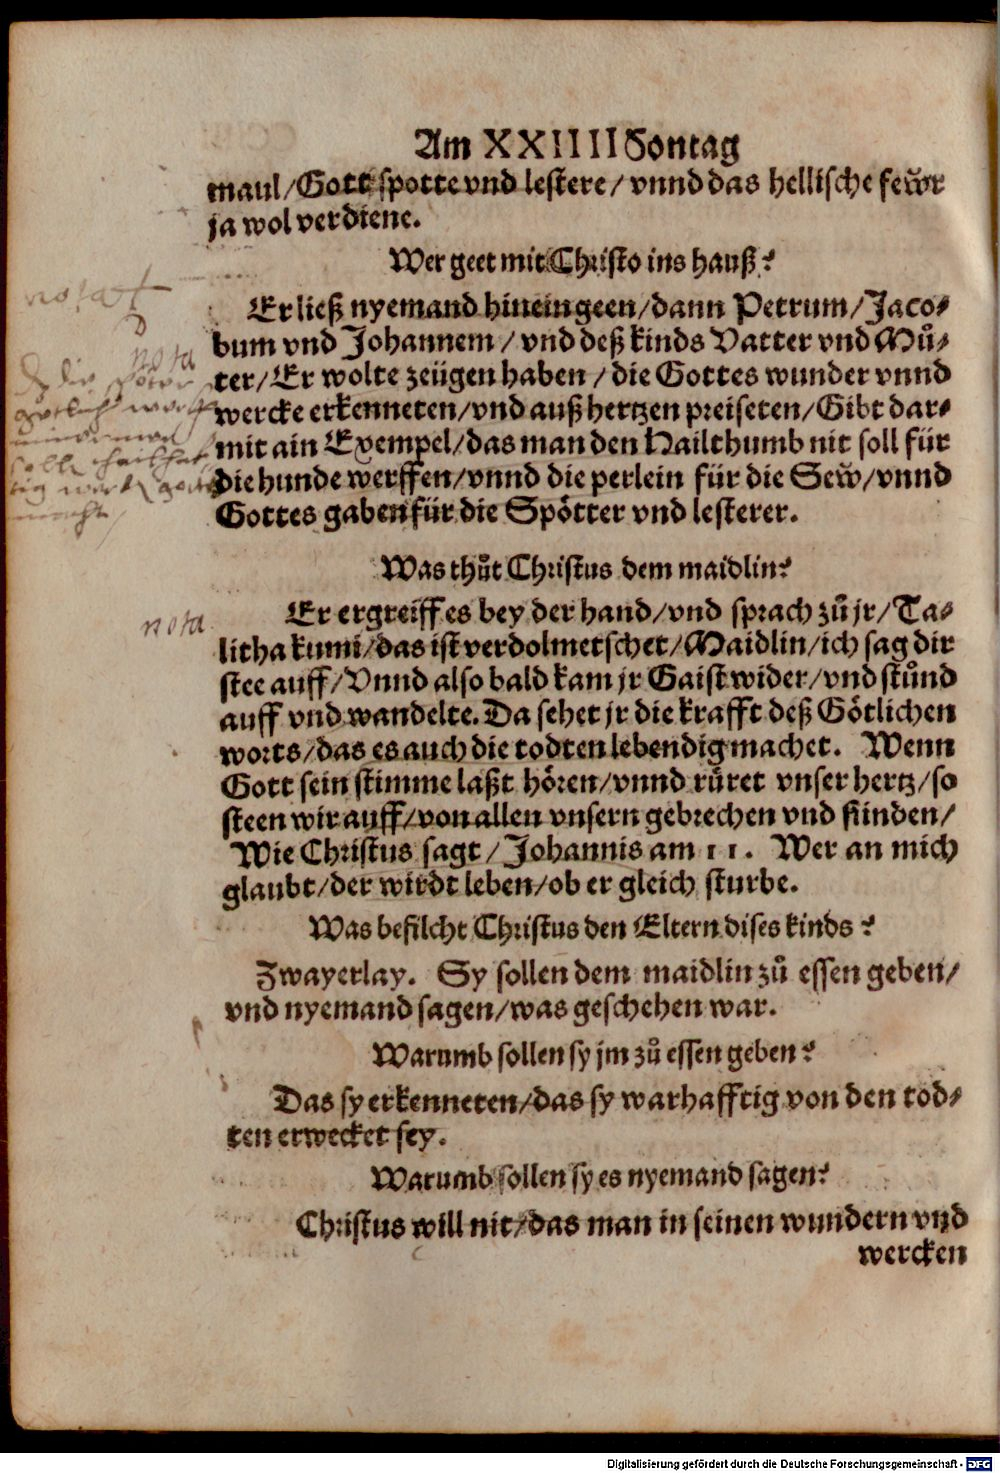 Am XXIIII Sontag
maul/Gott spotte vnd lestere/ vnnd das hellische fewͤr
ja wol verdiene.
Wer geet mit Christo ins hauß?
Er ließ nyemand hinein geen/dann Petrum/Jaco-
bum vnd Johannem/ vnd deß kinds Vatter vnd Muͤ-
ter/Er wolte zeügen haben/die Gottes wunder vnnd
wercke erkenneten/vnd auß hertzen preiseten/Gibt dar-
mit ain Exempel/das man den Hailthumb nit soll für
die hunde werffen/vnnd die perlein für die Sew̆/vnnd
Gottes gaben für die Spötter vnd lesterer.
Was thuͦt Christus dem maidlin?
Er ergreiff es bey der hand/vnd sprach zuͦ jr/Ta-
litha kumi/das ist verdolmetschet/Maidlin/ich sag dir
stee auff/Vnnd also bald kam jr Gaist wider/vnd stuͦnd
auff vnd wandelte. Da sehet jr die krafft deß Götlichen
worts/das es auch die todten lebendig machet. Wenn
Gott sein stimme laßt hören/vnnd rüret vnser hertz/so
steen wir auff/von allen vnsern gebrechen vnd sünden/
Wie Christus sagt/ Johannis am 11. Wer an mich
glaubt/der wirdt leben/ob er gleich sturbe.
Was befilcht Christus den Eltern dises kinds?
Zwayerlay. Sy sollen dem maidlin zuͦ essen geben/
vnd nyemand sagen/was geschehen war.
Warumb sollen sy jm zuͦ essen geben?
Das sy erkenneten/das sy warhafftig von den tod-
ten erwecket sey.
Warumb sollen sy es nyemand sagen?
Christus will nit/das man in seinen wundern vnd
wercken
nota
nota
nota
Digitalisierung gefördert durch die Deutsche Forschungsgemeinschaft - DFG